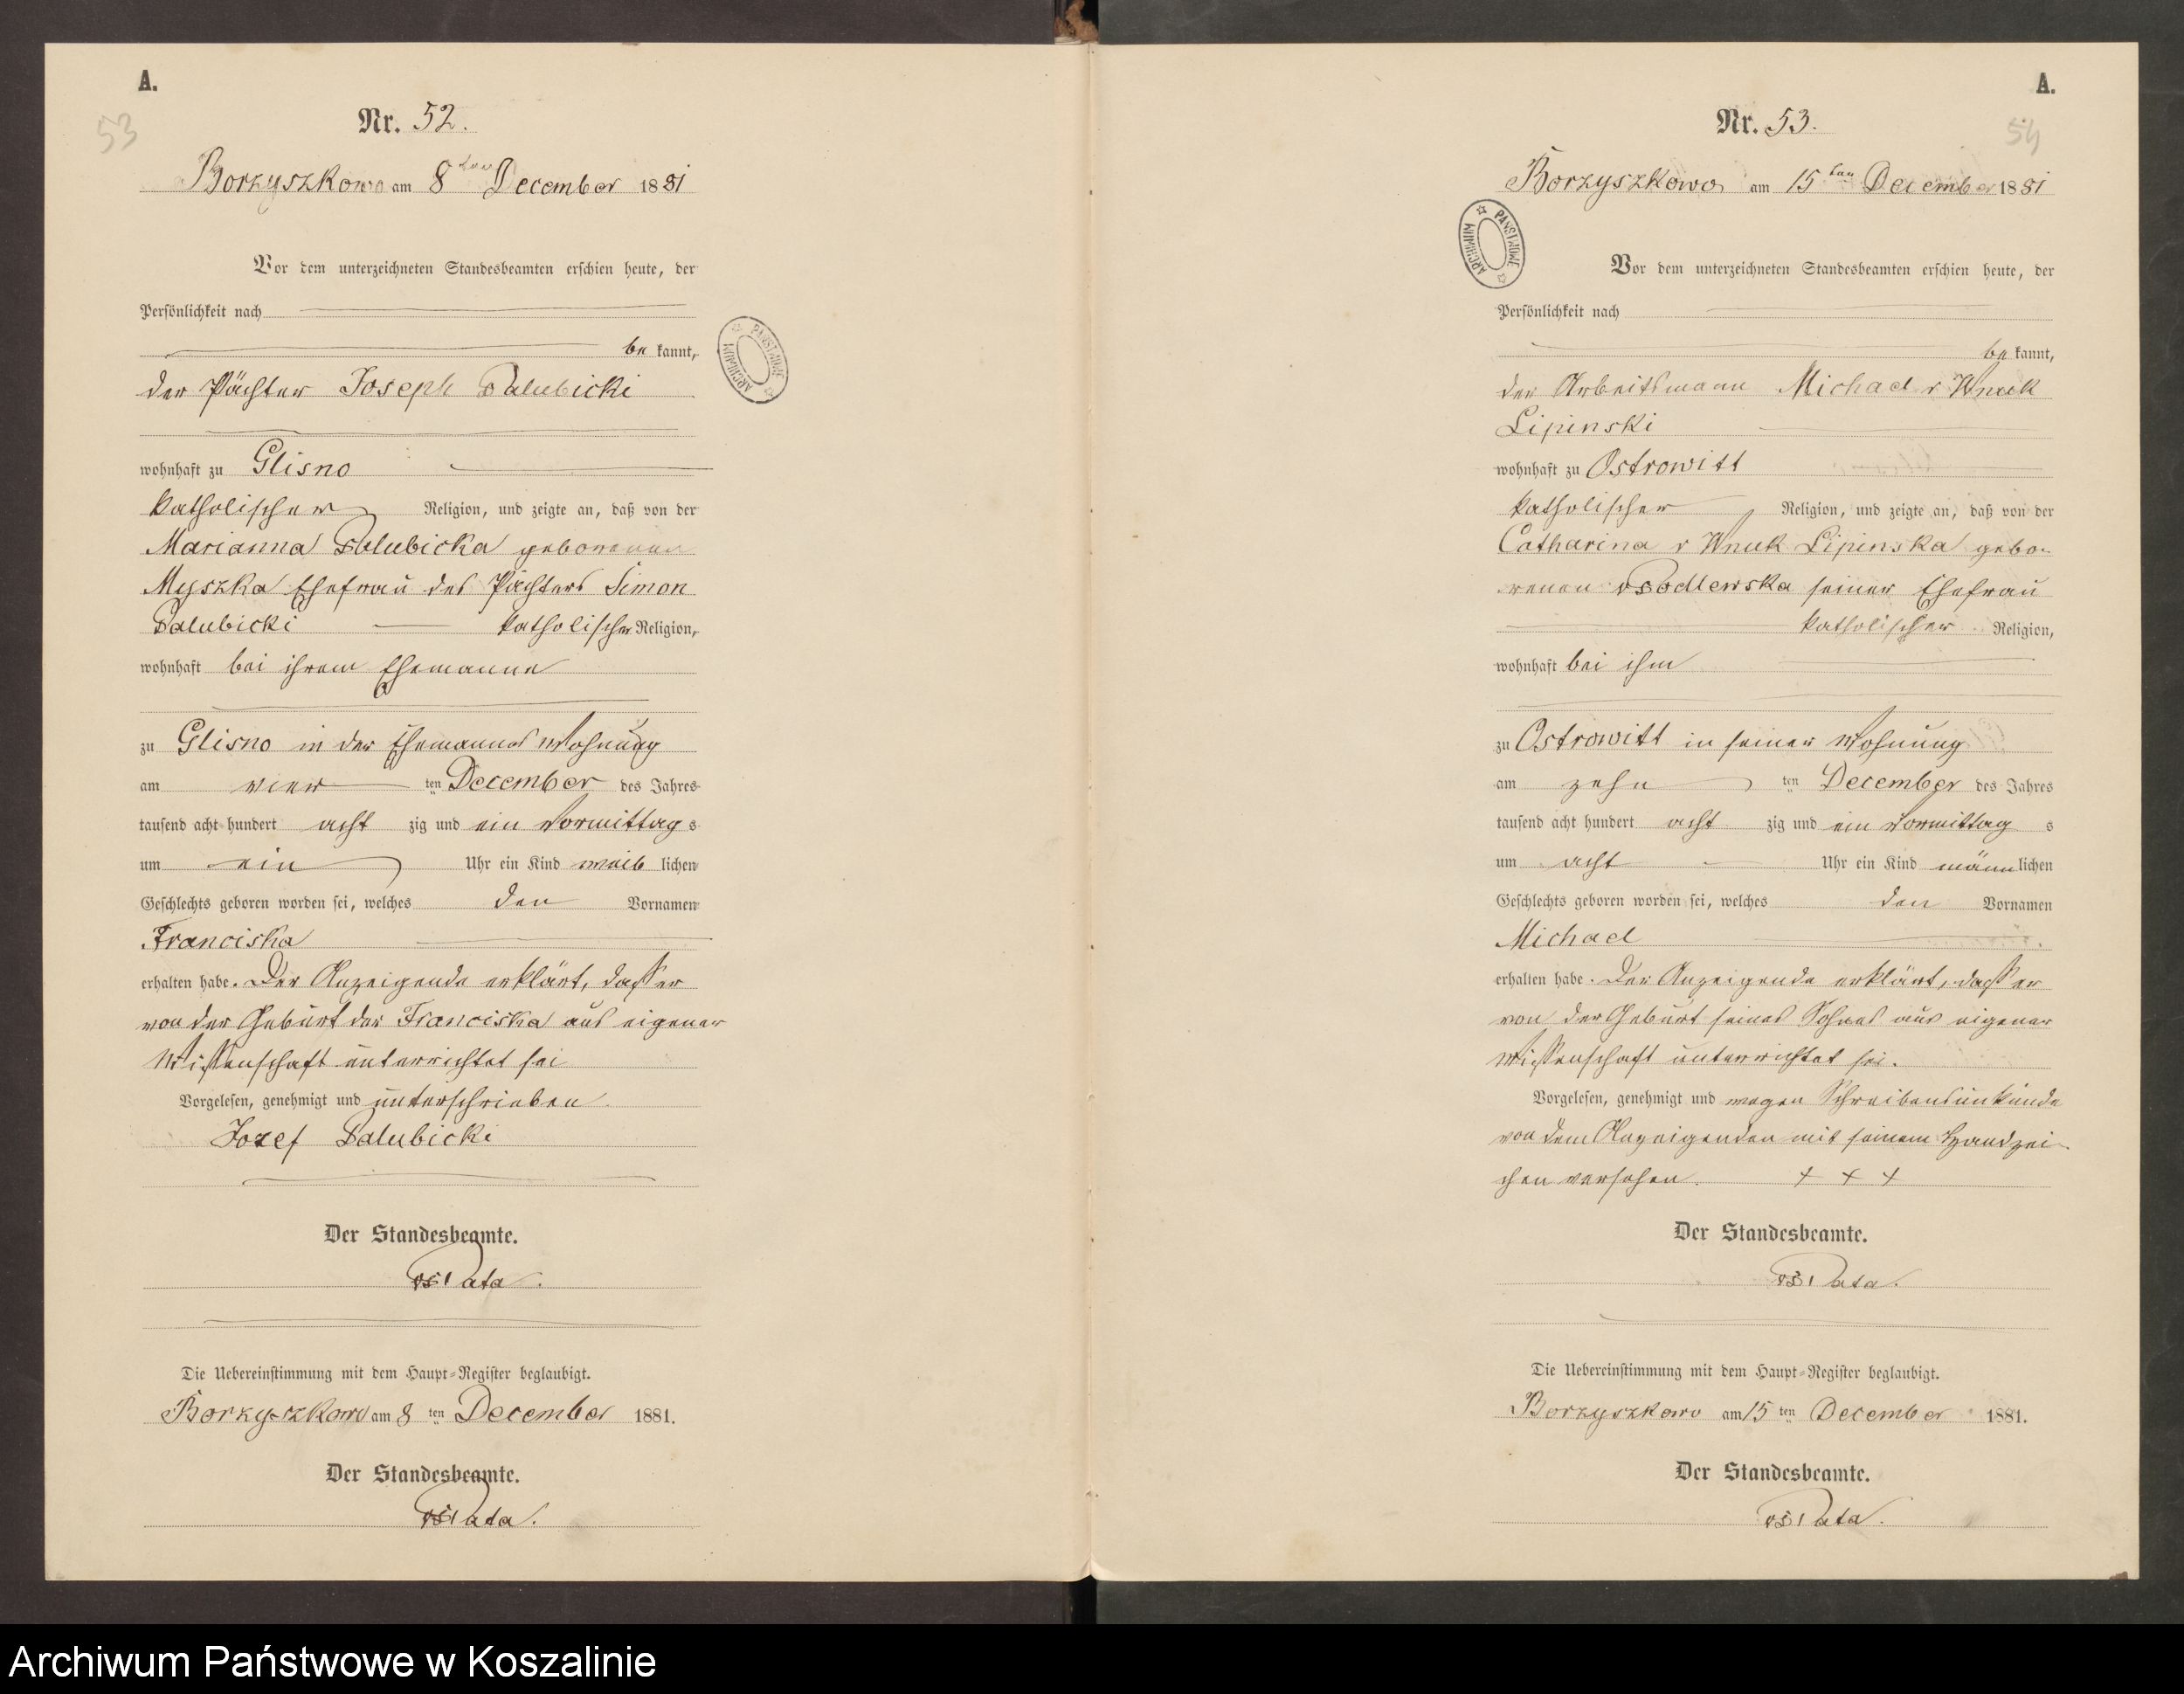 A.
53
Nr. 52.
Borzyszkowo am 8ten December 1881
Vor dem unterzeichneten Standesbeamten erschien heute, der
Persönlichkeit nach
be kannt,
der Pächter Joseph Palubicki
wohnhaft zu Glisno
katholischer Religion, und zeigte an, daß von der
Marianna Palubicka geborenen
Myszka Ehefrau des Pächters Simon
Palubicki katholischer Religion,
wohnhaft bei ihrem Ehemanne
zu Glisno in der Ehemannes Wohnung
am vier ten December des Jahres
tausend acht hundert acht zig und ein Vormittag s
um ein Uhr ein Kind weib lichen
Geschlechts geboren worden sei, welches den Vornamen
Franciska
erhalten habe. Der Anzeigende erklärt, dass er
von der Geburt der Franciska aus eigener
Wissenschaft unterrichtet sei
Vorgelesen, genehmigt und unterschrieben
Jozef Palubicki
Der Standesbeamte.
Pata.
Die Uebereinstimmung mit dem Haupt-Register beglaubigt.
Borzyszkowo am 8 ten December 1881.
Der Standesbeamte.
Pata.
PAŃSTWOWE ARCHIWUM
A.
54
Nr. 53.
Borzyszkowo am 15ten December 1881
PAŃSTWOWE ARCHIWUM
Vor dem unterzeichneten Standesbeamten erschien heute, der
Persönlichkeit nach
be kannt,
der Arbeitsmann Michael v Wnuk
Lipinski
wohnhaft zu Ostrowitt
katholischer Religion, und zeigte an, daß von der
Catharina v Wnuk Lipinska gebo-
renen Podlewska seiner Ehefrau
katholischer Religion,
wohnhaft bei ihm
zu Ostrowitt in seiner Wohnung
am zehn ten December des Jahres
tausend acht hundert acht zig und ein Vormittag s
um acht Uhr ein Kind männ lichen
Geschlechts geboren worden sei, welches den Vornamen
Michael
erhalten habe. Der Anzeigende erklärt, dass er
von der Geburt seines Sohnes aus eigener
Wissenschaft unterrichtet sei.
Vorgelesen, genehmigt und wegen Schreibensunkunde
von dem Anzeigenden mit seinem Handzei-
chen versehen. + + +
Der Standesbeamte.
Pata.
Die Uebereinstimmung mit dem Haupt-Register beglaubigt.
Borzyszkowo am 15 ten December 1881.
Der Standesbeamte.
Pata.
Archiwum Państwowe w Koszalinie